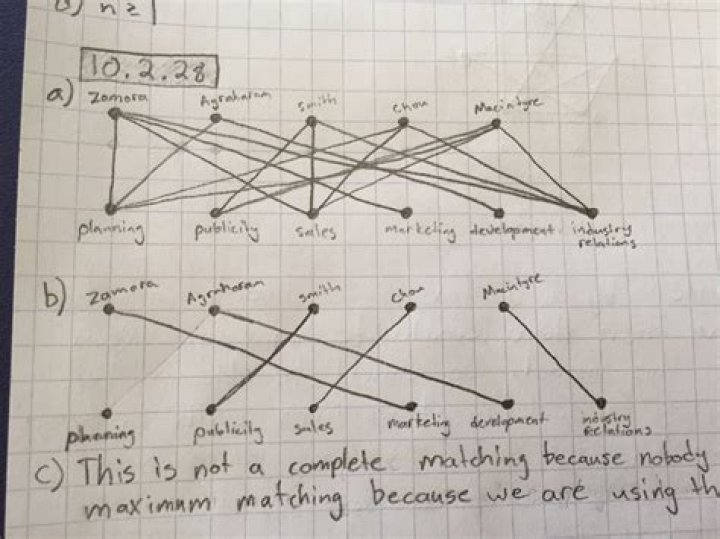 n ≥ 1
10.2.28
a) Zamora Agraharam Smith Chou Macintyre
planning publicity sales marketing development industry relations
b) Zamora Agraharam Smith Chou Macintyre
planning publicity sales marketing development industry relations
c) This is not a complete matching because nobody
maximum matching because we are using th